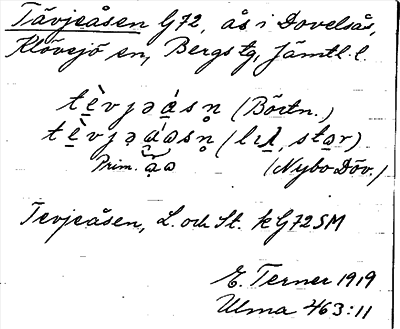 Tävjeåsen G72, ås i Dovelsås,
Klövsjö sn, Bergs tg, Jämtl. l.
tè̱vjəá̱sn̥ (Börtn.)
tè̱vjə̱á̱əsn̥ (lıʎ, star)
Prim. a̱ə (Nybo Döv.)
Tevjeåsen, L. och St. kG72SM
E. Terner 1919
Ulma 463:11